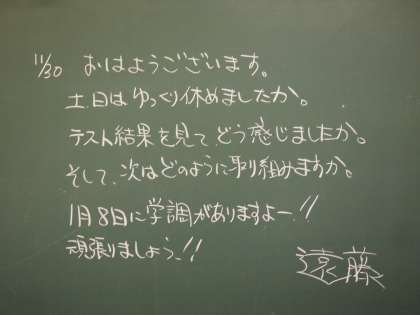 11/30 おはようございます。
土.日はゆっくり休めましたか。
テスト結果を見て、どう感じましたか。
そして、次はどのように取り組みますか。
1月8日に学調がありますよー!!
頑張りましょう、!!
遠藤